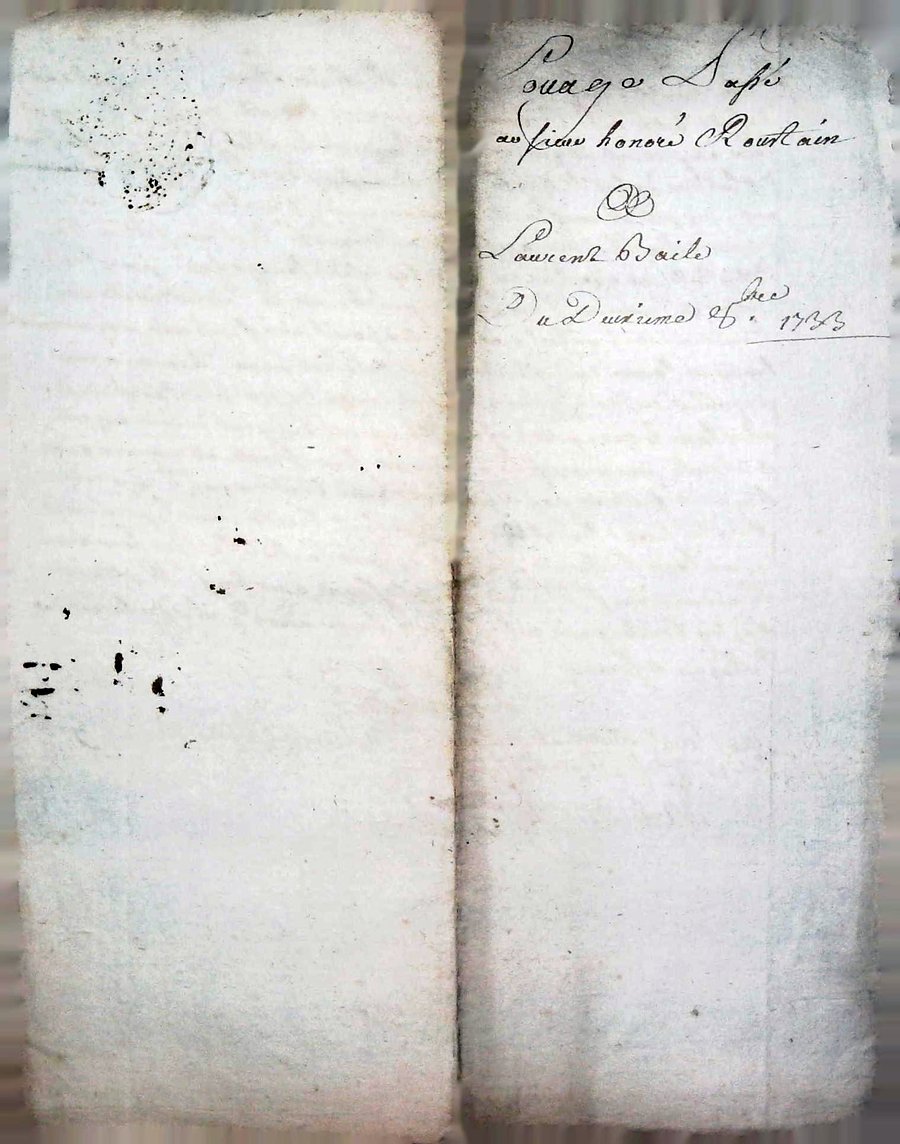 Louage Passé
au sieur honoré Roustain
Laurent Baile
Du Deuxieme 8bre 1733